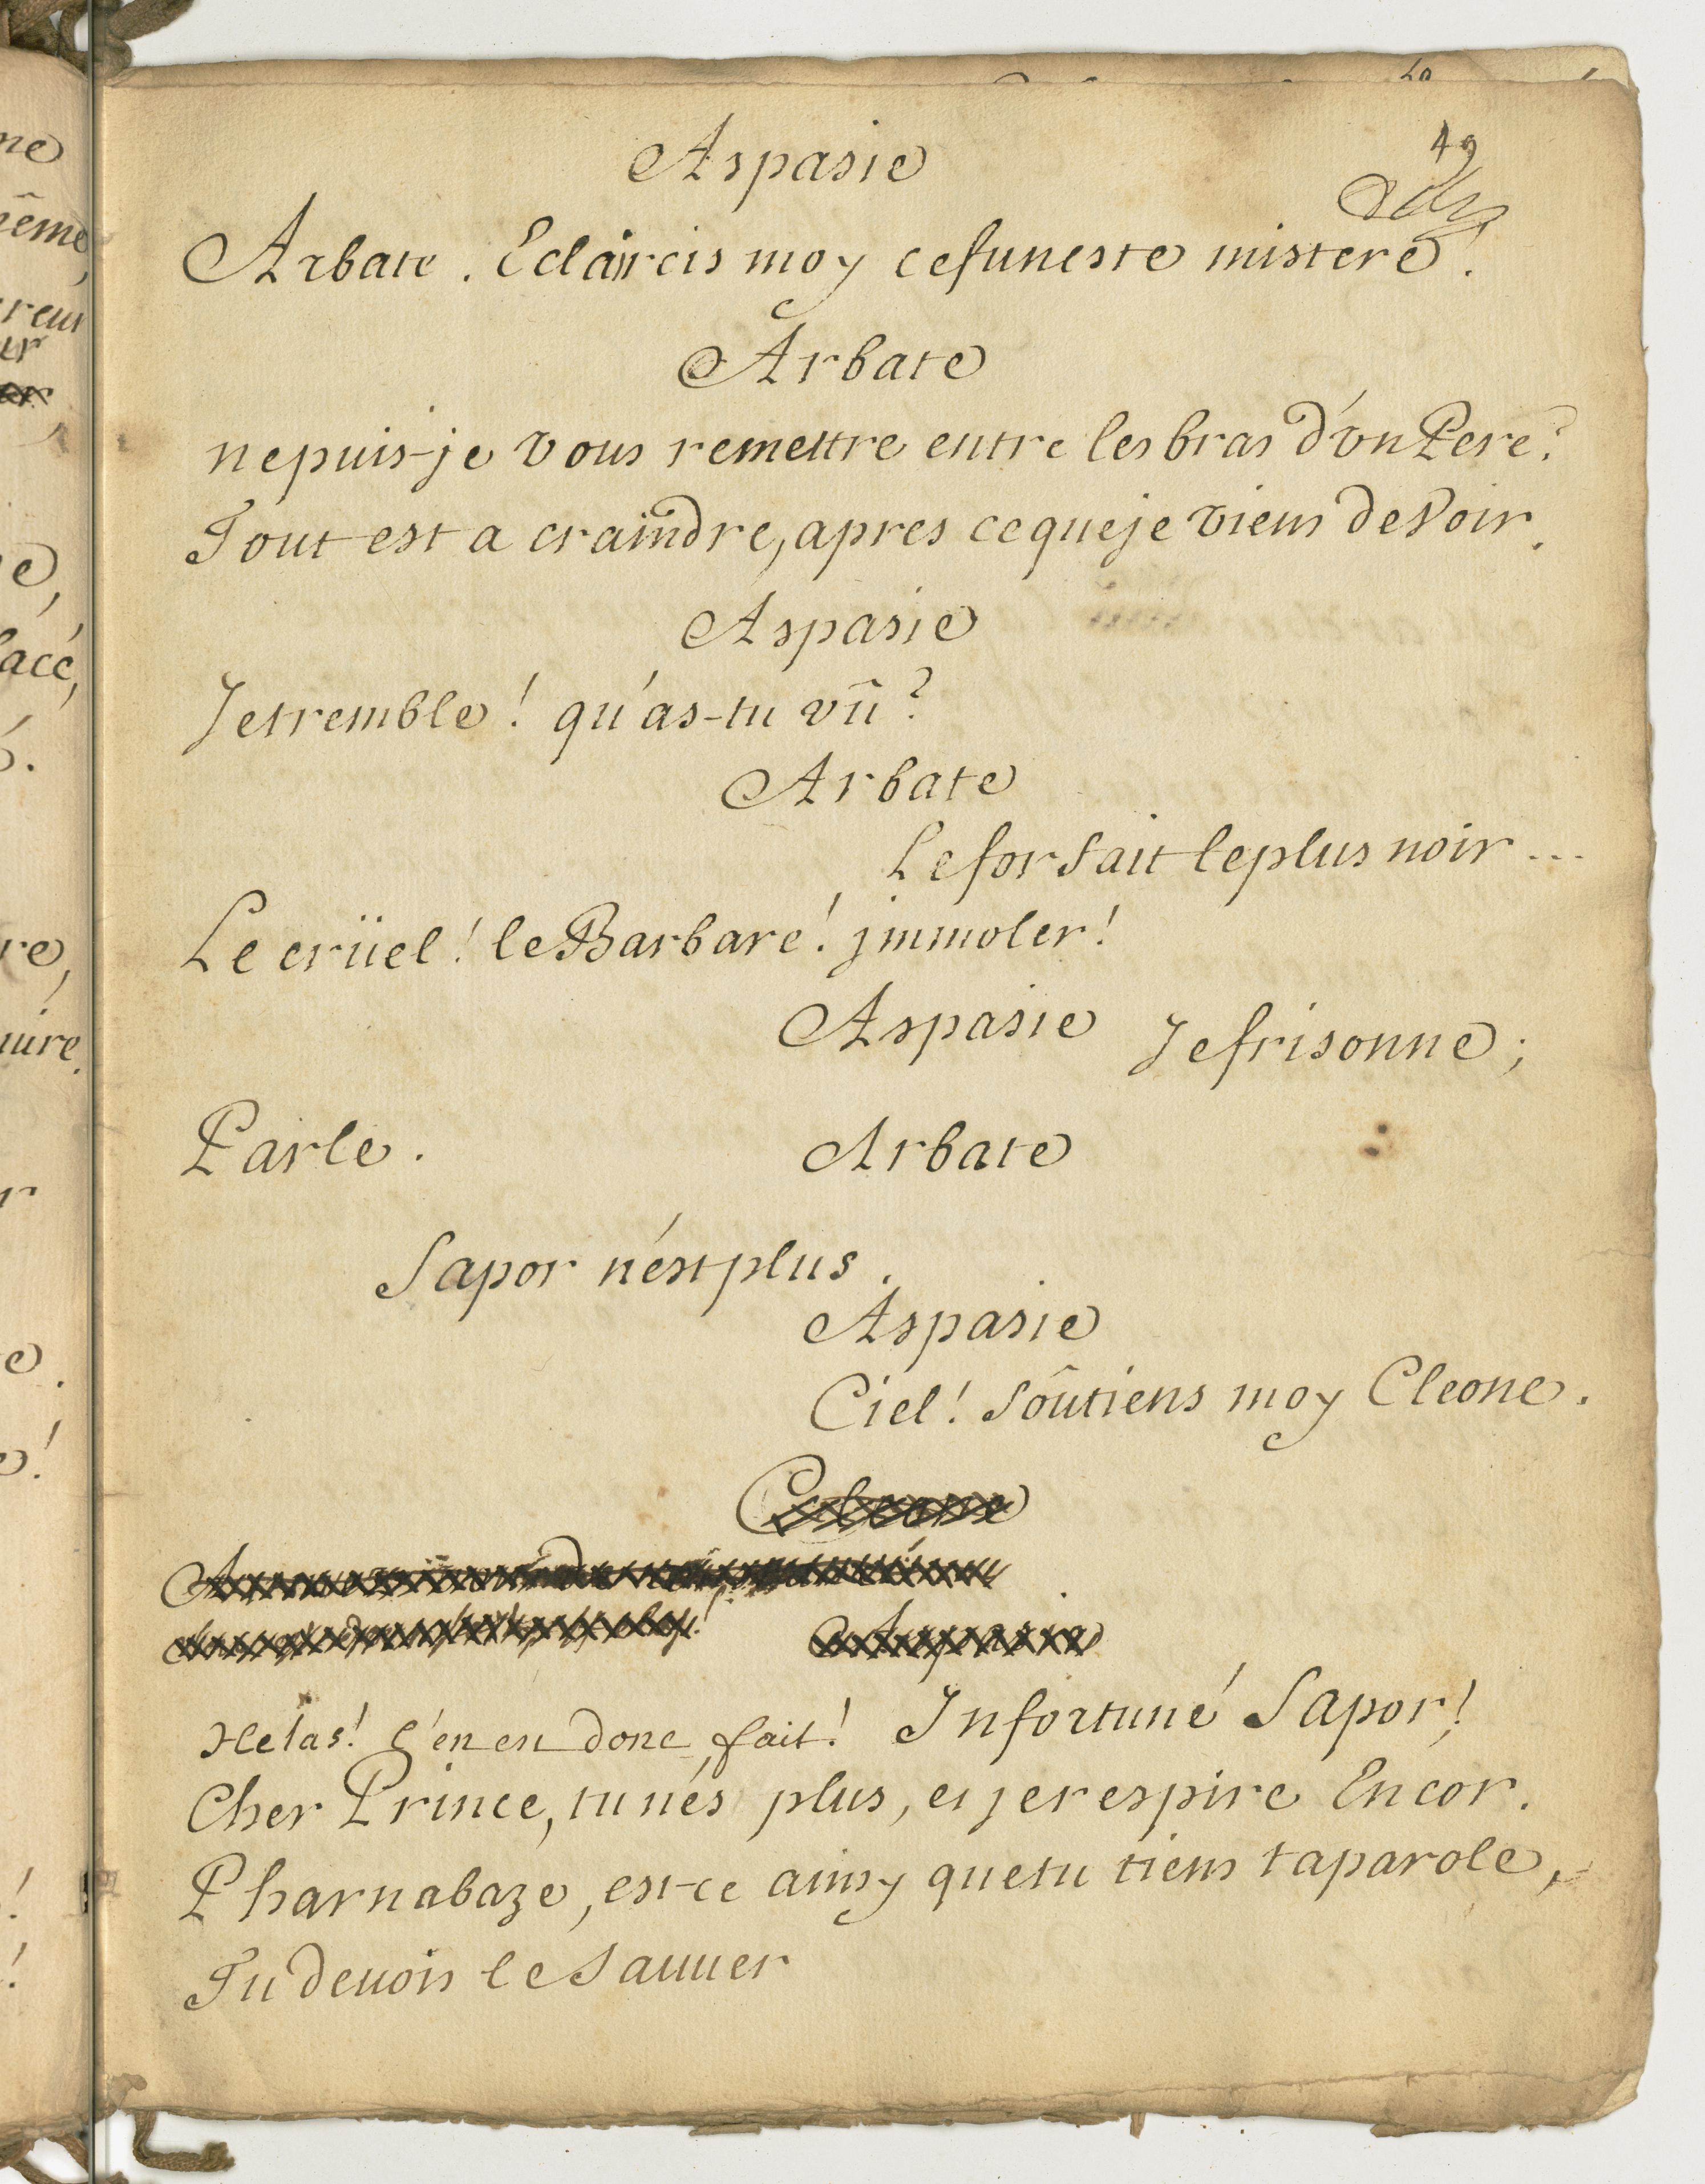 49
Aspasie
Arbate. Eclaircis moy ce funeste mistere!
Arbate
ne puis-je vous remettre entre les bras d'vn Pere?
Tout est a craindre, apres ce que je viens de voir.
Aspasie
Je tremble! qu'as-tu vû?
Arbate
Le forfait le plus noir ...
Le crüel! le Barbare! jmmoler!
Aspasie Je frisonne;
Parle. Arbate
Sapor n'est plus.
Aspasie
Ciel! soûtiens moy Cleone.
Cleone
Aspasie
Helas! c'en est donc fait! Infortuné Sapor!
Cher Prince, tu n'és plus, et je respire Encor.
Pharnabaze, est-ce ainsy que tu tiens ta parole,
Tu deuois le sauuer